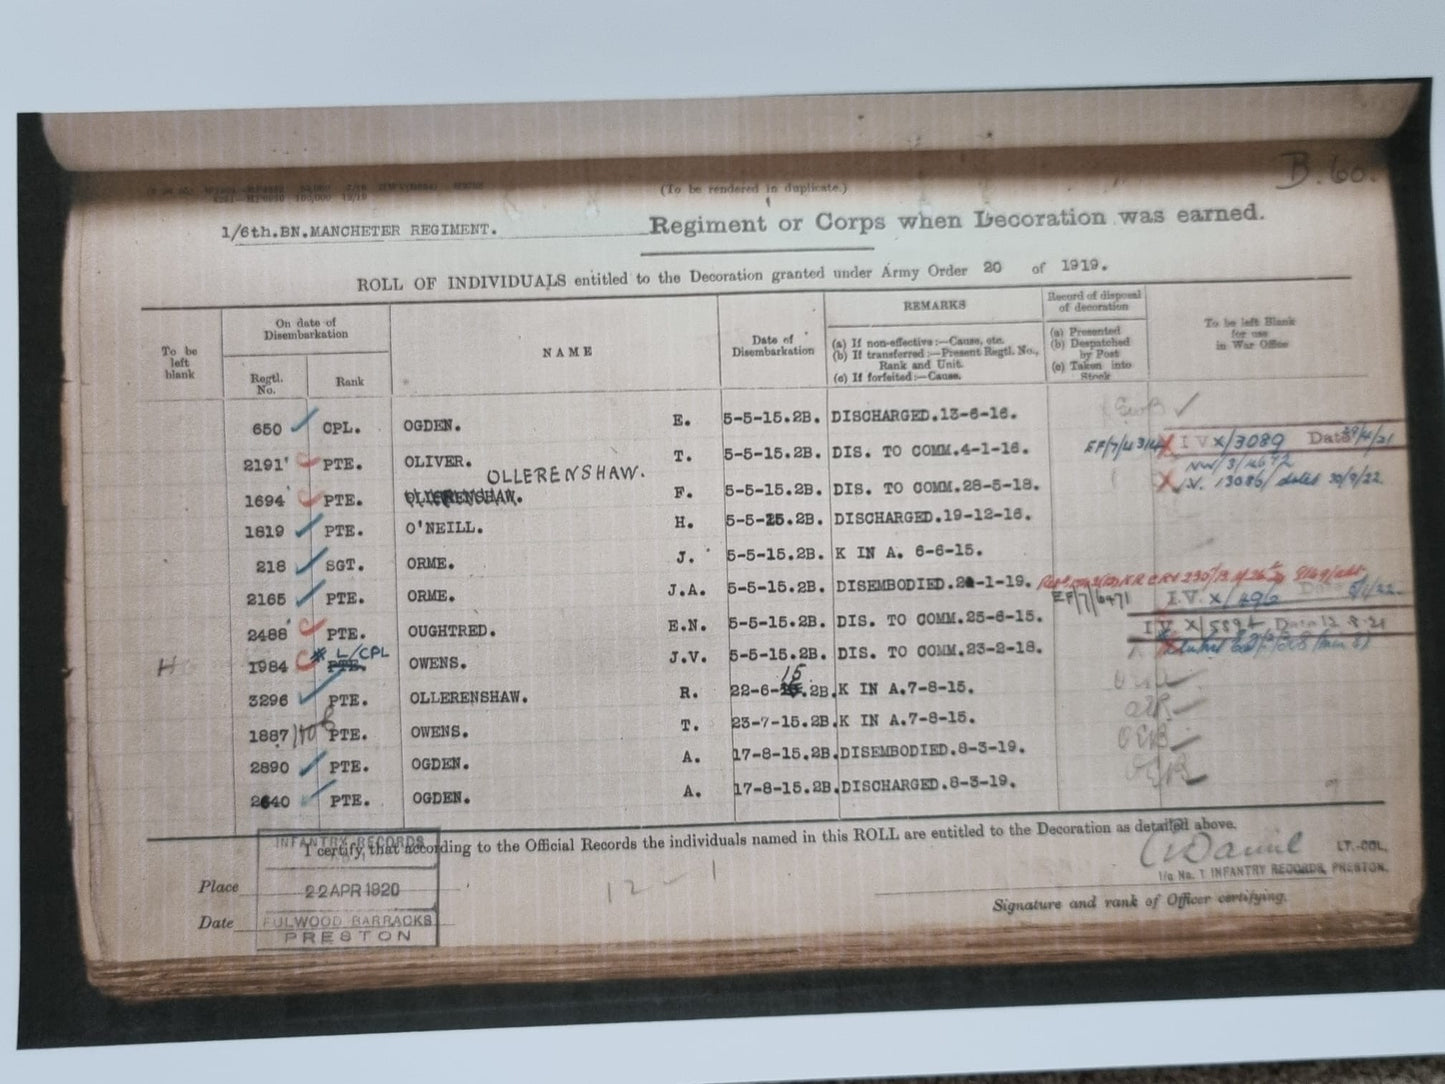 B.60.
(To be rendered in duplicate.)
1/6th.BN.MANCHETER REGIMENT. Regiment or Corps when Decoration was earned.
ROLL OF INDIVIDUALS entitled to the Decoration granted under Army Order 20 of 1919.
To be left blank
On date of Disembarkation
Regtl. No.
Rank
NAME
Date of Disembarkation
REMARKS
(a) If non-effective:—Cause, etc.
(b) If transferred:—Present Regtl. No., Rank and Unit.
(c) If forfeited:—Cause.
Record of disposal of decoration
(a) Presented
(b) Despatched by Post
(c) Taken into Stock
To be left Blank for use in War Office
650 CPL. OGDEN. E. 5-5-15.2B. DISCHARGED.13-6-16.
2191 PTE. OLIVER. T. 5-5-15.2B. DIS. TO COMM.4-1-16. IV X/3089
OLLERENSHAW.
1694 PTE. OLLERENSHAW. F. 5-5-15.2B. DIS. TO COMM.28-5-18. I.V. 13086/ dated 30/9/22.
1819 PTE. O'NEILL. H. 5-5-15.2B. DISCHARGED.19-12-16.
218 SGT. ORME. J. 5-5-15.2B. K IN A. 6-6-15.
2165 PTE. ORME. J.A. 5-5-15.2B. DISEMBODIED.2 -1-19.
EF/7/6471 I.V. X/496
2488 PTE. OUGHTRED. E.N. 5-5-15.2B. DIS. TO COMM.25-6-15. IV X/5894
L/CPL
H 1984 PTE. OWENS. J.V. 5-5-15.2B. DIS. TO COMM.23-2-18.
15
3296 PTE. OLLERENSHAW. R. 22-6- .2B. K IN A.7-8-15.
1887 PTE. OWENS. T. 23-7-15.2B. K IN A.7-8-15.
2890 PTE. OGDEN. A. 17-8-15.2B. DISEMBODIED.8-3-19.
2640 PTE. OGDEN. A. 17-8-15.2B. DISCHARGED.8-3-19.
I certify, that according to the Official Records the individuals named in this ROLL are entitled to the Decoration as detailed above.
INFANTRY RECORDS
LT.-COL,
I/c No. 1 INFANTRY RECORDS, PRESTON.
Place
22 APR 1920
12 - 1
Signature and rank of Officer certifying.
Date
FULWOOD BARRACKS
PRESTON